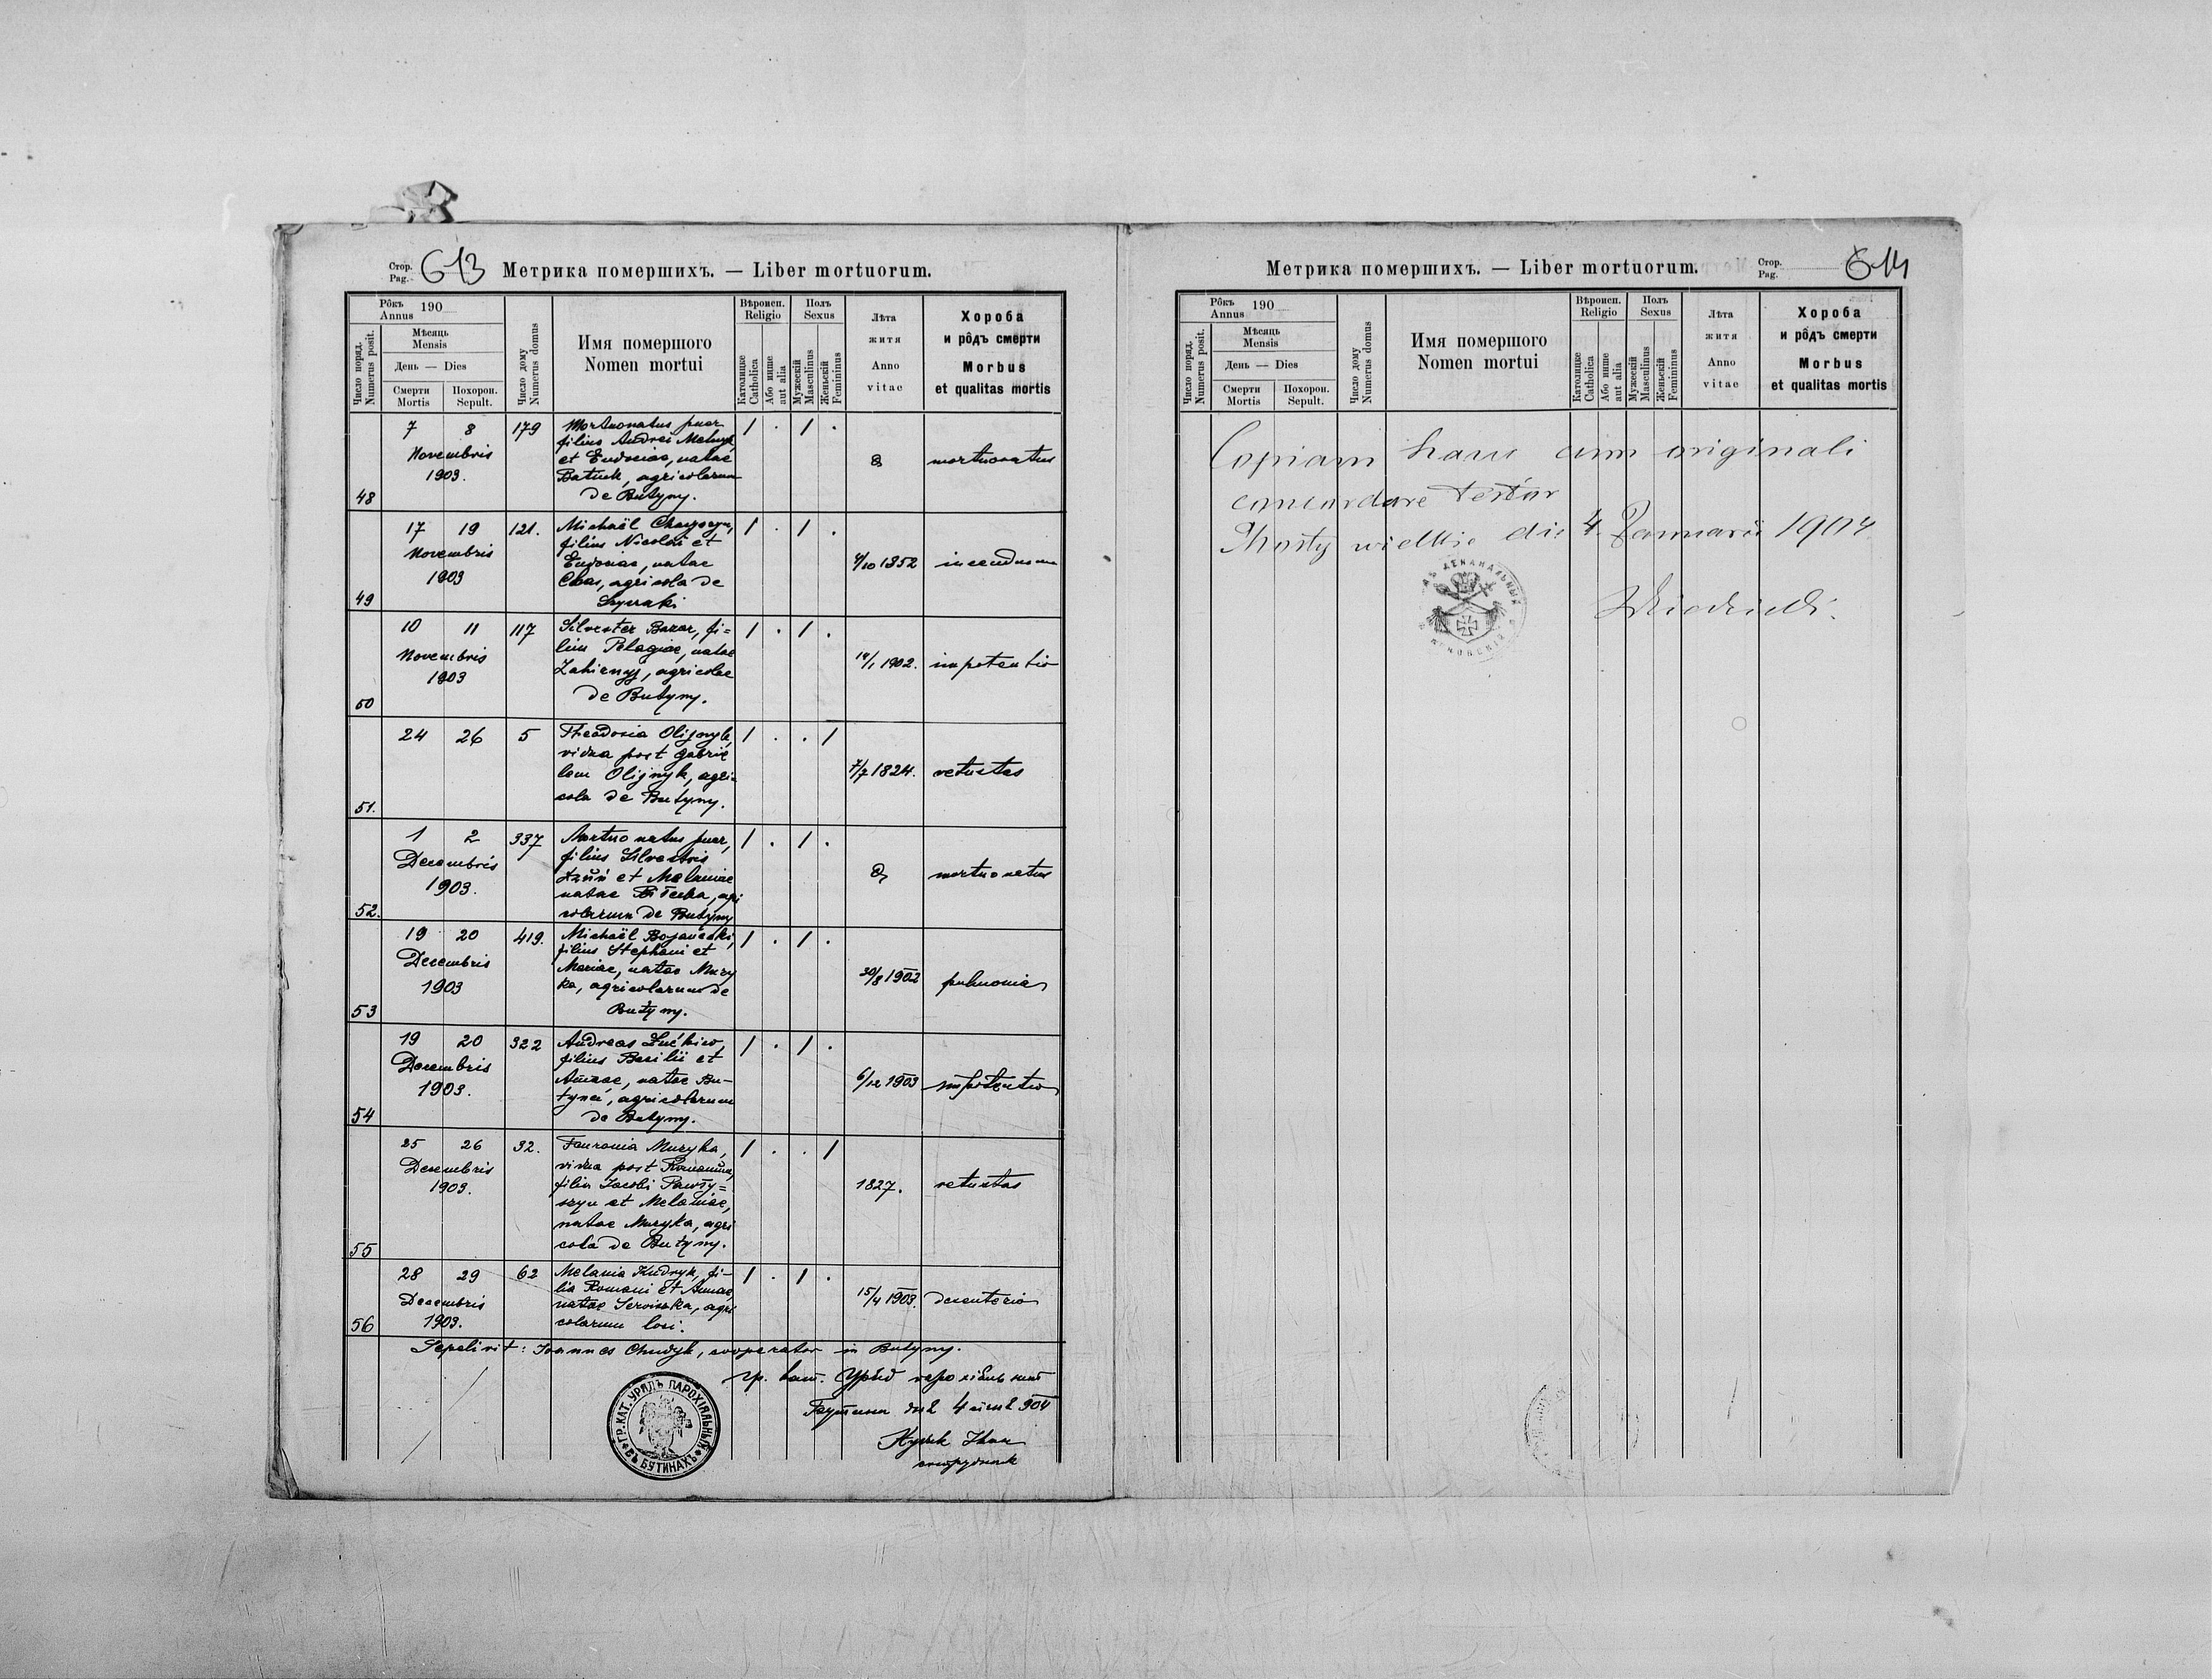 Стор.
Pag. 613
Метрика помершихъ. — Liber mortuorum.
Рôкъ
Annus 190
Мѣсяць
Mensis
День — Dies
Смерти
Mortis
Похорон.
Sepult.
Число поряд.
Numerus posit.
Число дому
Numerus domus
Имя помершого
Nomen mortui
Вѣроисп.
Religio
Католицке
Catholica
Або инше
aut alia
Полъ
Sexus
Мужескій
Masculinus
Женьскій
Femininus
Лѣта
житя
Anno
vitae
Хороба
и рôдъ смерти
Morbus
et qualitas mortis
48 7 8 Novembris 1903. 179
Mortuonatus puer
filius Andrei Melnyk
et Eudociae, natae
Batiuk, agricolarum
de Butyny.
1 . 1 .
mortuonatus
49 17 19 Novembris 1903 121.
Michaël
filius Nicolai et
Eudociae, natae
agricola de
1 . 1 .
4/10 1852
50 10 11 Novembris 1903 117
Silvester Bazar, fi=
lius Pelagiae, natae
agricolae
de Butyny.
1 . 1 .
14/1 1902. impotentio
51. 24 26 5
Theodosia Olijnyk,
vidua post Gabrie
lem Olijnyk, agri=
cola de Butyny.
1 . . 1
7/7 1824. vetustas
52. 1 2 Decembris 1903. 337
Mortuonatus puer,
filius Silvestris
et Melaniae
natae agri
colarum de Butyny
1 . 1 .
mortuonatus
53 19 20 Decembris 1903 419.
Michaël Bojanecki,
filius Stephani et
Mariae, natae Muzy
ka, agricolarum de
Butyny.
1 . 1 .
30/8 1902 pulmonia
54 19 20 Decembris 1903. 322
Andreas
filius Basilii et
Annae, natae Bu-
tyneć, agricolarum
de Butyny.
1 . 1 .
6/12 1903 impotentio
55 25 26 Decembris 1903. 32.
Fauronia Muzyka,
vidua post Romanum,
filia Jacobi Pawły=
szyn et Melaniae,
natae Muzyka, agri
cola de Butyny.
1 . . 1
1827. vetustas
56 28 29 Decembris 1903. 62
Melania Kudryk, fi-
lia Romani et Annae,
natae agri
colarum loci.
1 . 1 .
15/4 1903. desenterio
Sepelivit: Joannes Chudyk, cooperator in Butyny.
гр. кат. Урядъ
дня 4 904
сотрудник
ГР. КАТ. УРЯДЪ ПАРОХІЯЛЬНЫЙ ВЪ БУТИНАХЪ
Метрика помершихъ. — Liber mortuorum.
Стор.
Pag. 614
Рôкъ
Annus 190
Мѣсяць
Mensis
День — Dies
Смерти
Mortis
Похорон.
Sepult.
Число поряд.
Numerus posit.
Число дому
Numerus domus
Имя помершого
Nomen mortui
Вѣроисп.
Religio
Католицке
Catholica
Або инше
aut alia
Полъ
Sexus
Мужескій
Masculinus
Женьскій
Femininus
Лѣта
житя
Anno
vitae
Хороба
и рôдъ смерти
Morbus
et qualitas mortis
Copiam hanc cum originali
concordare testor
Mosty wielkie die 4. Januarii 1904